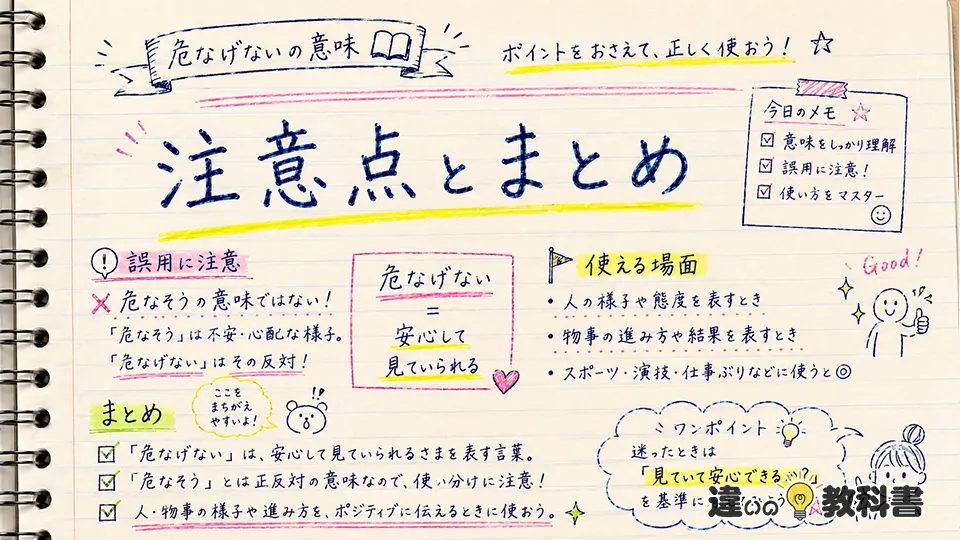 危なげないの意味
ポイントをおさえて、正しく使おう!
今日のメモ
意味をしっかり理解
誤用に注意!
使い方をマスター
注意点とまとめ
! 誤用に注意
危なそうの意味ではない!
「危なそう」は不安・心配な様子。
「危なげない」はその反対!
危なげない
=
安心して
見ていられる
使える場面
・人の様子や態度を表すとき
・物事の進み方や結果を表すとき
・スポーツ・演技・仕事ぶりなどに使うと◎
Good!
まとめ
ここを
まちがえ
やすいよ!
!?
「危なげない」は、安心して見ていられるさまを表す言葉。
「危なそう」とは正反対の意味なので、使い分けに注意!
人・物事の様子や進み方を、ポジティブに伝えるときに使おう。
ワンポイント
迷ったときは
「見ていて安心できる
を基準に
違いの教科書